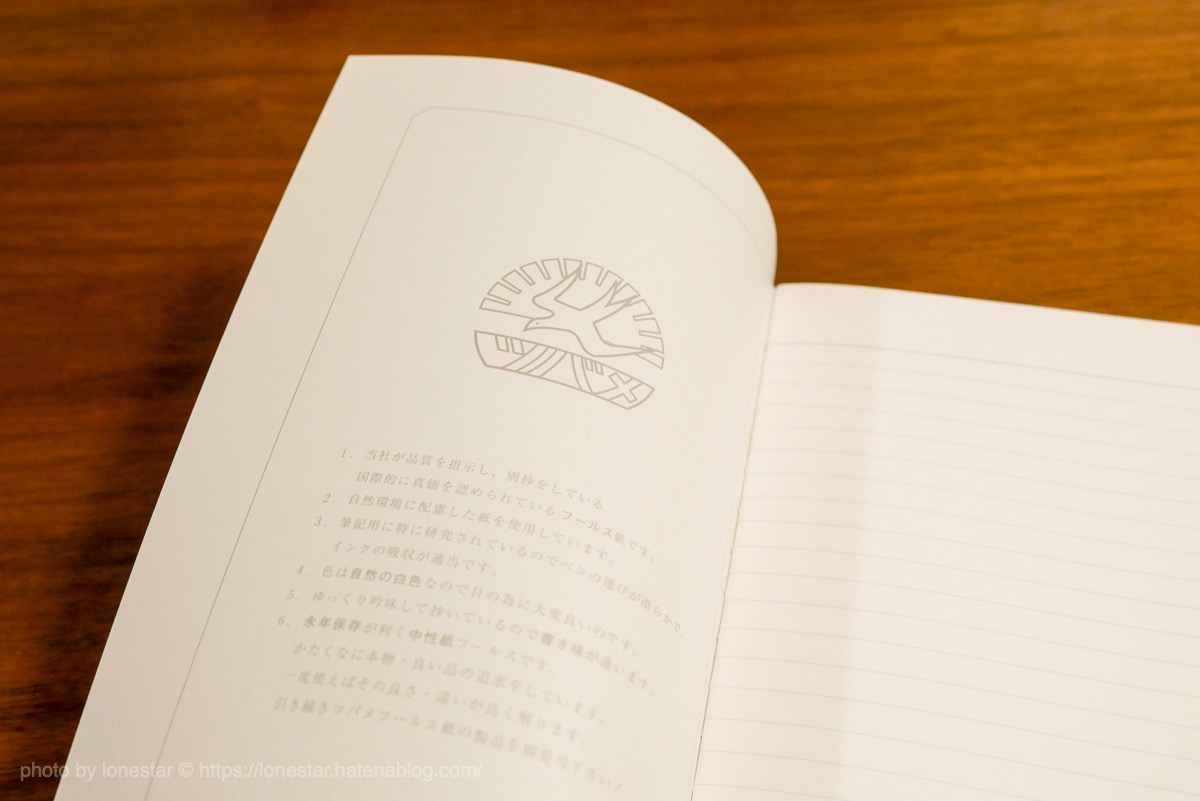 ツバメ
1. 当社が品質を指示し、別抄をしている
国際的に真価を認められているフールス紙です。
2. 自然環境に配慮した紙を使用しています。
3. 筆記用に特に研究されているのでペンの運びが滑らかで、
インクの吸収が適当です。
4. 色は自然の白色なので目の為に大変良いのです。
5. ゆっくり吟味して抄いているので書き味が違います。
6. 永年保存が利く中性紙フールスです。
かたくなに本物・良い品の追求をしています。
一度使えばその良さ・違いが良く解ります。
引き続きツバメフールス紙の製品を御愛用下さい!
photo by lonestar © https://lonestar.hatenablog.com/